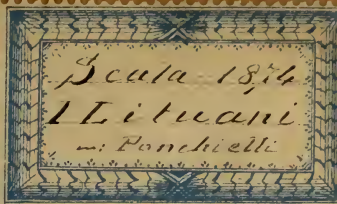 Scala 1874
I Lituani
m: Ponchielli